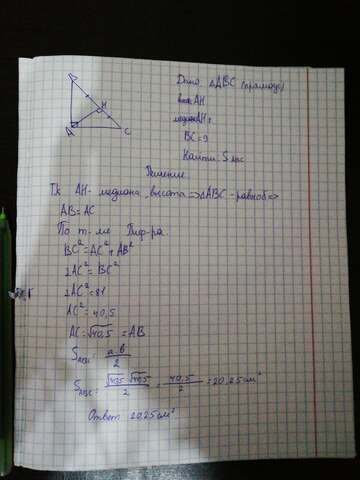 Дано: △ABC (прямоуг)
выс. AH
медиана AH
BC=9
Найти: S авс
Решение
Тк AH- медиана, высота =>△ABC -равноб =>
AB=AC
По т-ме Пиф-ра
BC²=AC²+AB²
2AC²=BC²
2AC²=81
AC²=40,5
AC=√40,5=AB
S авс = ab/2
S авс = √40,5·√40,5/2 = 40,5/2 =20,25см²
Ответ 20,25см²
B
H
A
C